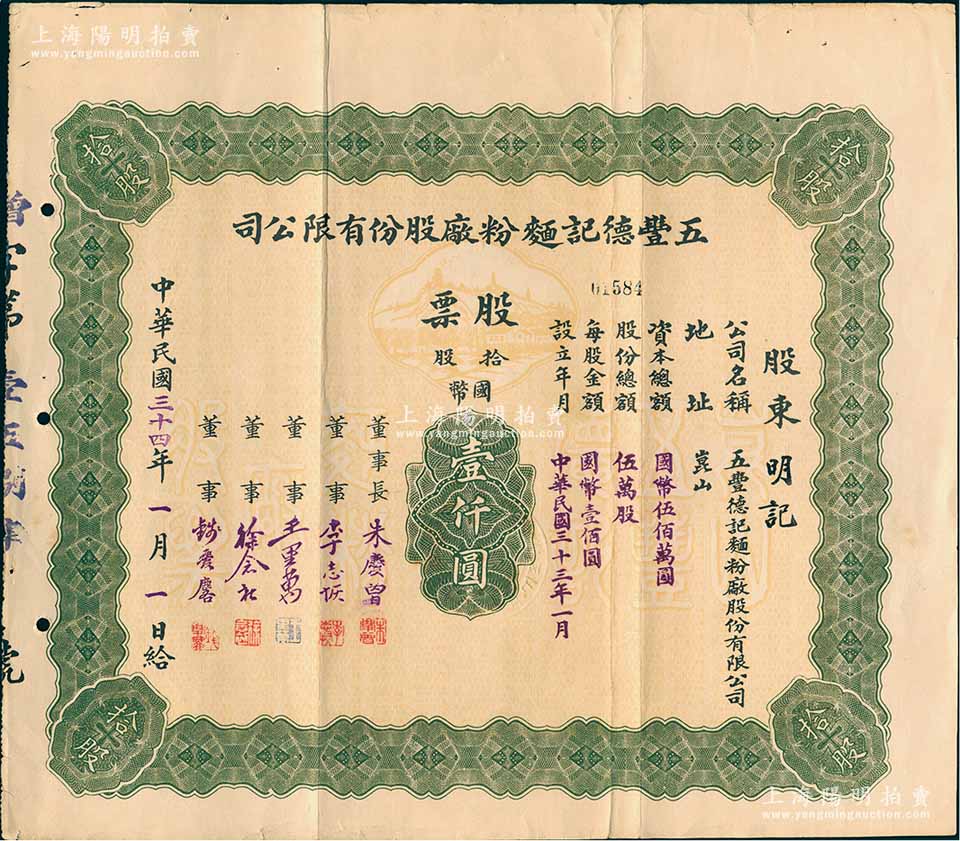 上海陽明拍賣
www.yangmingauction.com
五豐德記麵粉廠股份有限公司
584
股票
拾股
國幣
壹仟圓
股東 明記
公司名稱 五豐德記麵粉廠股份有限公司
地址 崑山
資本總額 國幣伍佰萬圓
股份總額 伍萬股
每股金額 國幣壹佰圓
設立年月 中華民國三十三年一月
董事長 朱慶曾
董事 李志
董事
董事 徐
董事
中華民國三十四年一月一日給
字第壹五捌
號
拾股
拾股
拾股
拾股
上海陽明拍賣
www.yangmingauction.com
上海陽明拍賣
www.yangmingauction.com